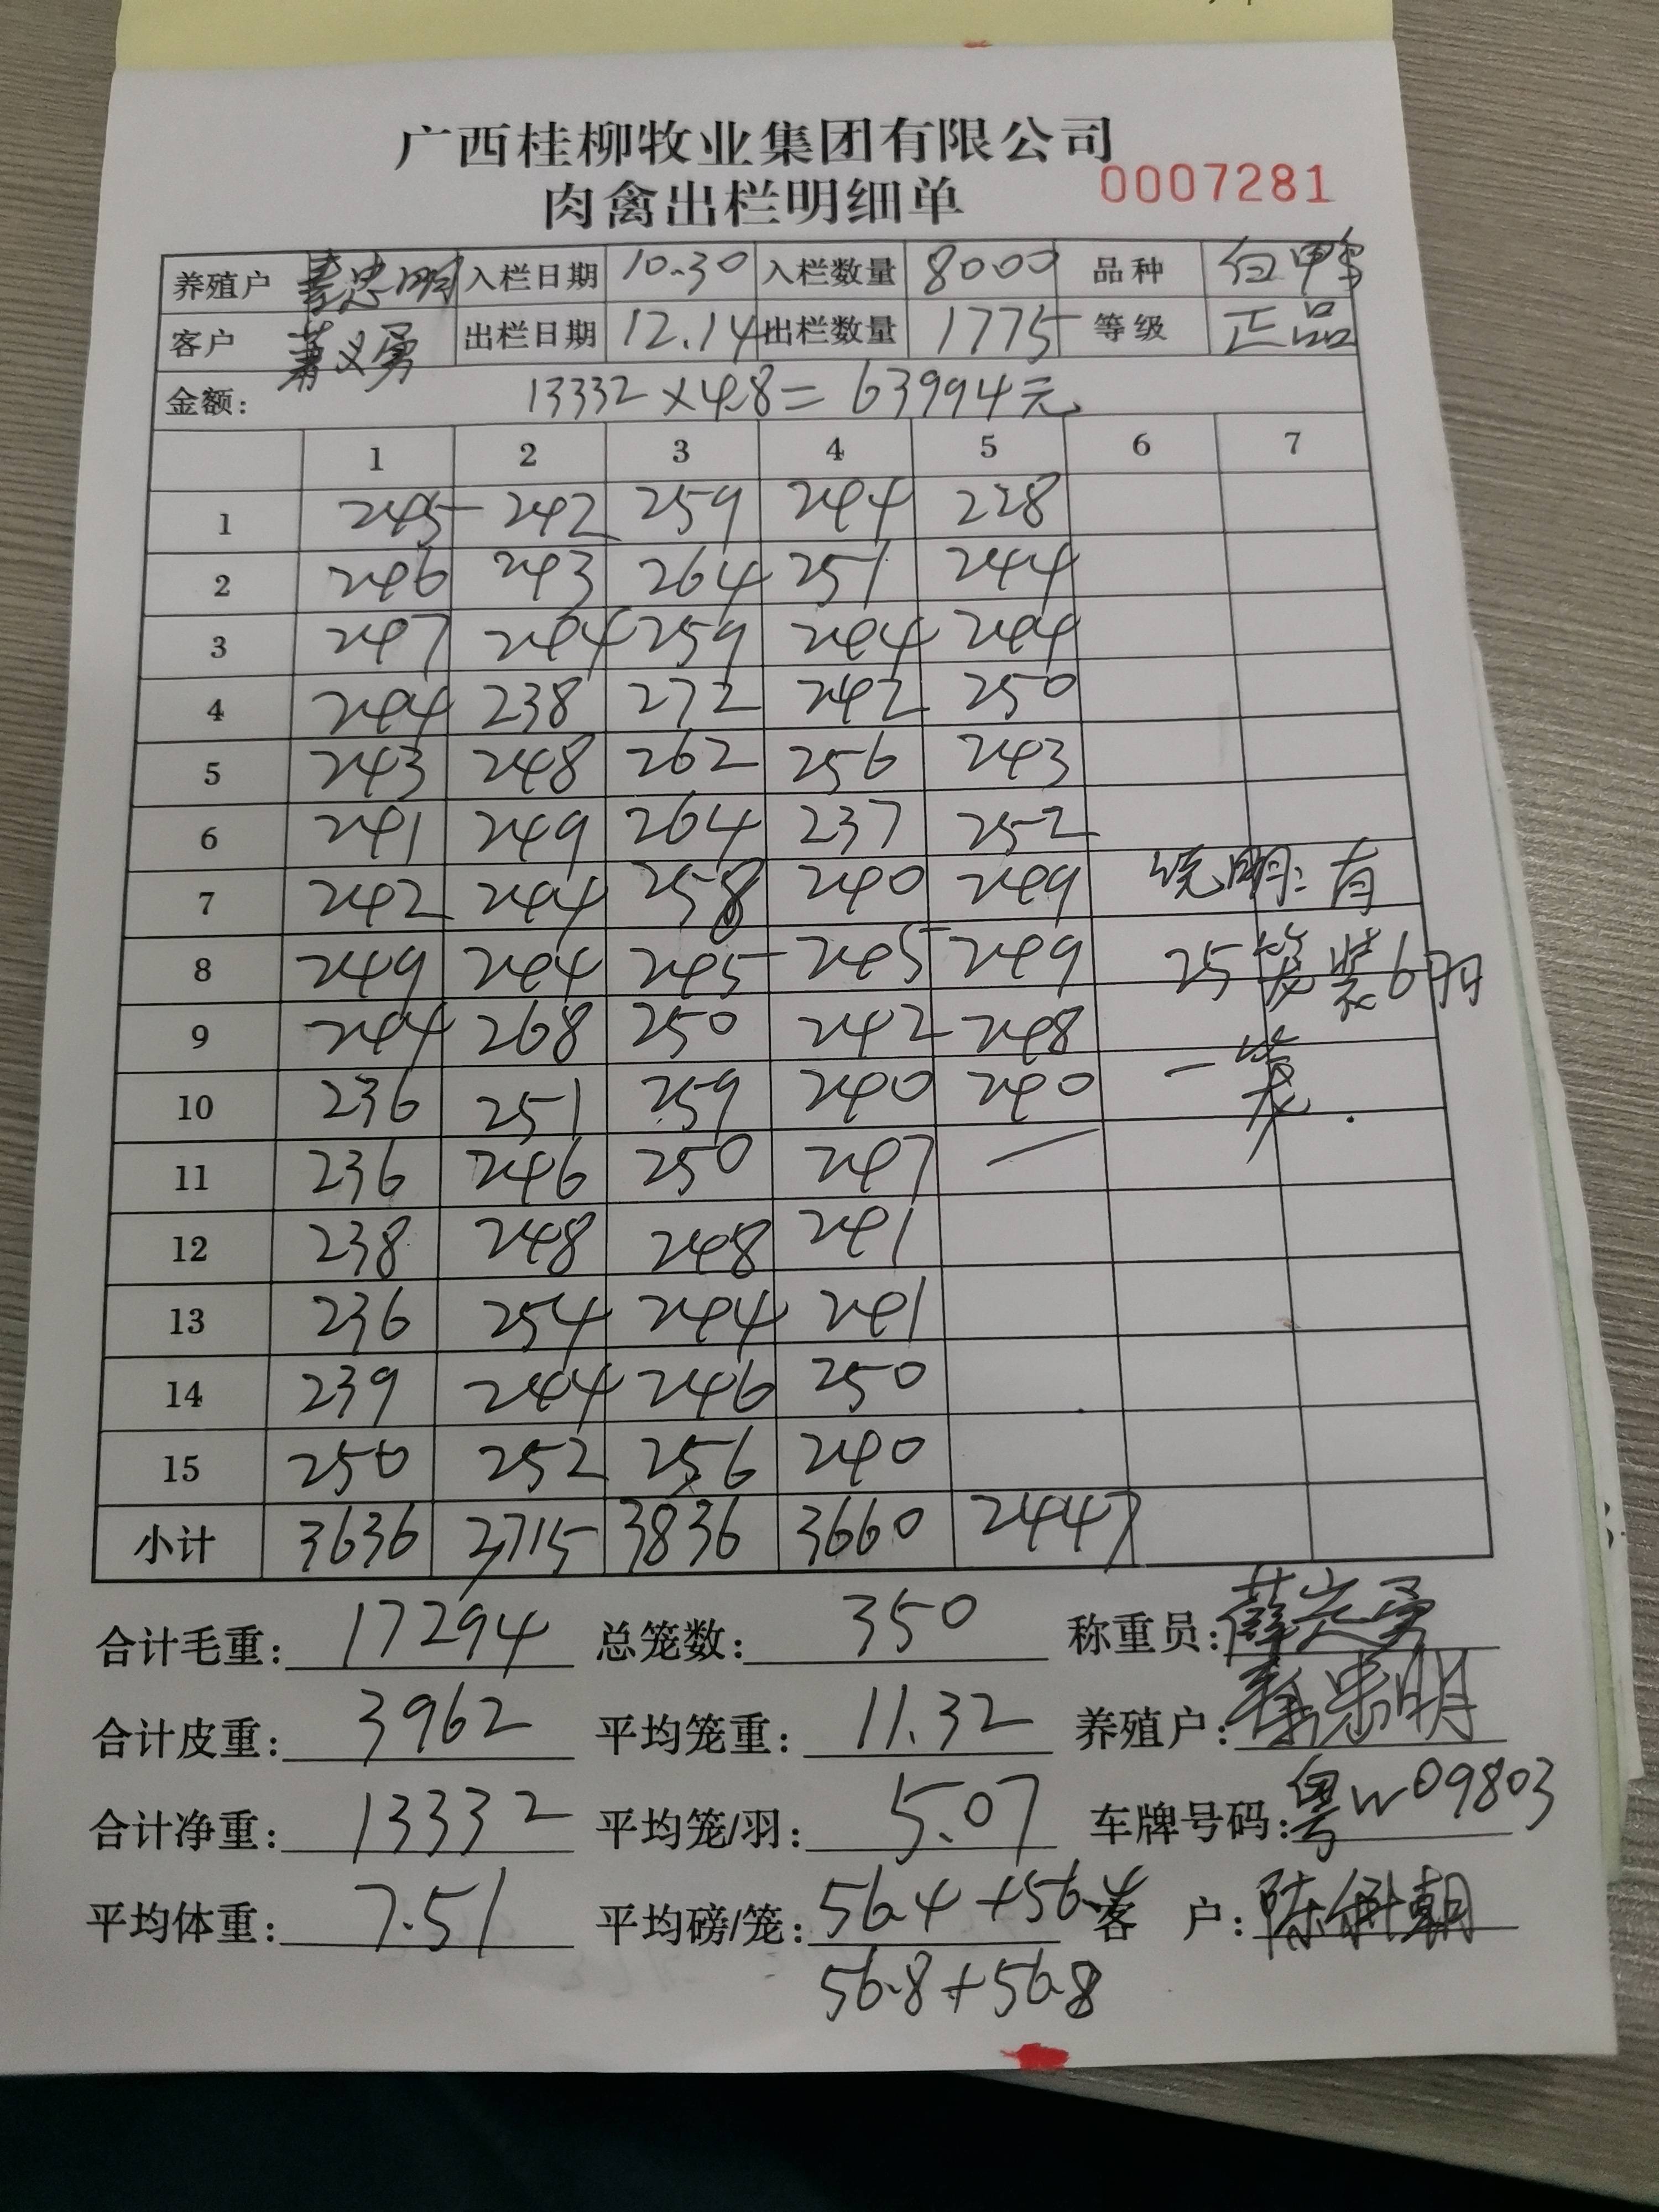 广西桂柳牧业集团有限公司
肉禽出栏明细单 0007281
养殖户 忠明 入栏日期 10.30 入栏数量 8000 品种 白鸭
客户 义勇 出栏日期 12.14 出栏数量 1775 等级 正品
金额: 13332×4.8=63994元
1 2 3 4 5 6 7
1 245 242 259 244 228
2 246 243 264 251 244
3 247 244 259 244 244
4 244 238 272 242 250
5 243 248 262 256 243
6 241 249 264 237 252
7 242 244 258 240 249 说明:有
8 249 244 245 245 249 25笼装6羽
9 244 268 250 242 248 一笼.
10 236 251 259 240 240
11 236 246 250 247 —
12 238 248 248 241
13 236 254 244 241
14 239 244 246 250
15 250 252 256 240
小计 3636 3715 3836 3660 2447
合计毛重: 17294 总笼数: 350 称重员: 勇
合计皮重: 3962 平均笼重: 11.32 养殖户: 忠明
合计净重: 13332 平均笼/羽: 5.07 车牌号码: 粤W09803
平均体重: 7.51 平均磅/笼: 56.4+56.4 客 户: 陈朝
56.8+56.8